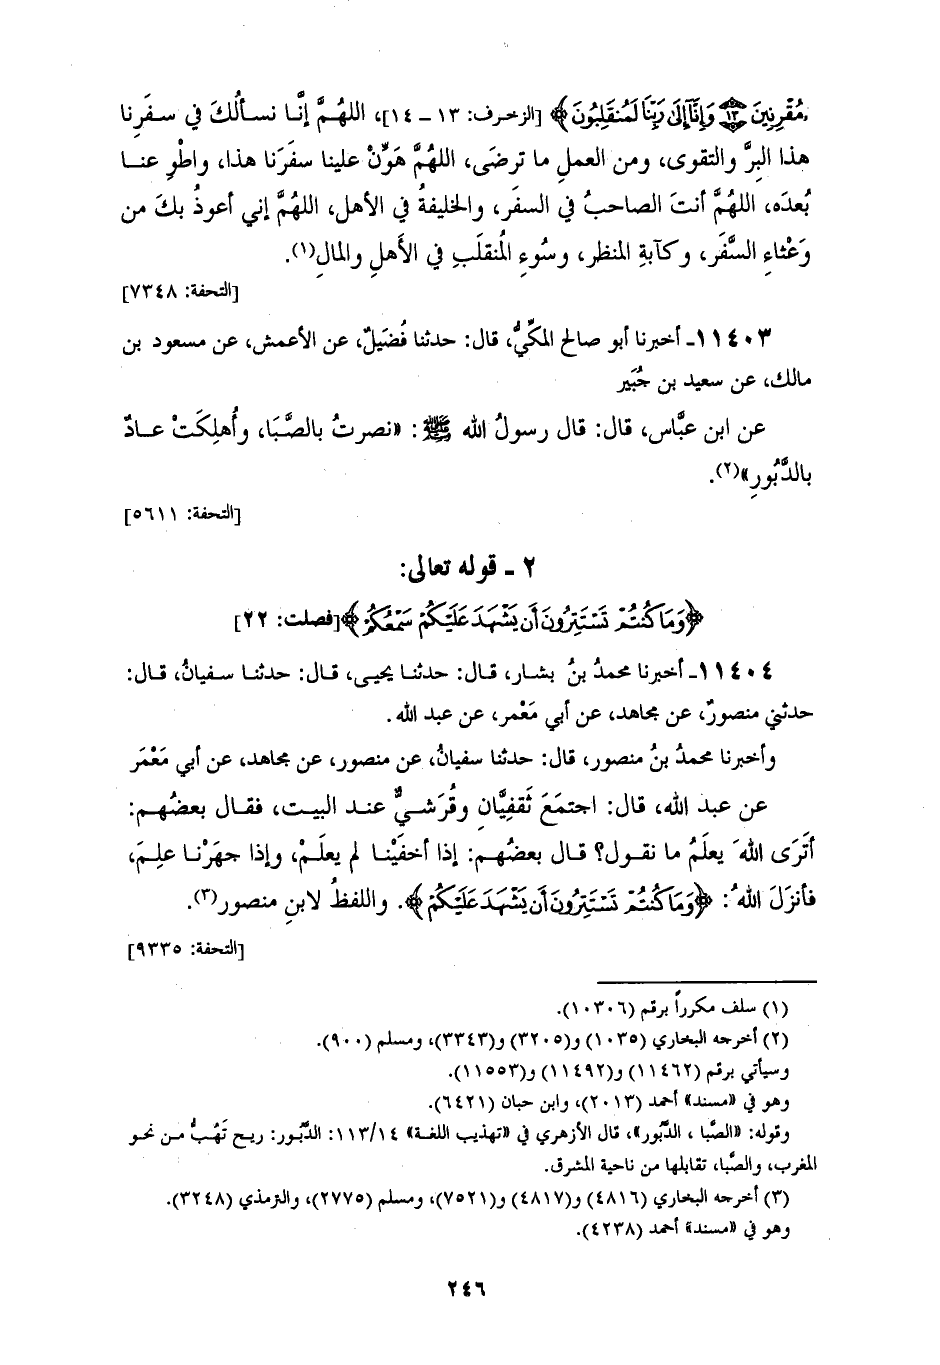 مُقْرِنِينَ ۝١٣ وَإِنَّآ إِلَىٰ رَبِّنَا لَمُنقَلِبُونَ﴾ [الزخرف: ١٣ - ١٤]، اللهُمَّ إنَّا نسألُكَ في سفَرِنا
هذا البِرَّ والتقوى، ومن العملِ ما ترضَى، اللهُمَّ هَوِّنْ علينا سفَرَنا هذا، واطْوِ عنا
بُعدَه، اللهُمَّ أنتَ الصاحبُ في السفَر، والخليفةُ في الأهل، اللهُمَّ إني أعوذُ بكَ من
وَعْثاءِ السَّفَر، وكآبةِ المنظر، وسُوءِ المُنقلَبِ في الأهلِ والمالِ(١).
[التحفة: ٧٣٤٨]
١١٤٠٣- أخبرنا أبو صالح المكيُّ، قال: حدثنا فُضَيلٌ، عن الأعمش، عن مسعود بن
مالك، عن سعيد بن جُبَير
عن ابن عبَّاس، قال: قال رسولُ الله ﷺ: «نصرتُ بالصَّبَا، وأُهلِكَتْ عادٌ
بالدَّبُورِ»(٢).
[التحفة: ٥٦١١]
٢ - قوله تعالى:
﴿وَمَا كُنتُمْ تَسْتَتِرُونَ أَن يَشْهَدَ عَلَيْكُمْ سَمْعُكُمْ﴾ [فصلت: ٢٢]
١١٤٠٤- أخبرنا محمدُ بنُ بشار، قال: حدثنا يحيى، قال: حدثنا سفيانُ، قال:
حدثني منصورٌ، عن مجاهد، عن أبي مَعْمر، عن عبد الله.
وأخبرنا محمدُ بنُ منصور، قال: حدثنا سفيانُ، عن منصور، عن مجاهد، عن أبي مَعْمَر
عن عبد الله، قال: اجتمَعَ ثَقفِيَّانِ وقُرَشيٌّ عند البيت، فقال بعضُهم:
أتَرَى اللهَ يعلَمُ ما نقول؟ قال بعضُهم: إذا أخفَيْنا لم يعلَمْ، وإذا جهَرْنا علِمَ،
فأنزَلَ اللهُ: ﴿وَمَا كُنتُمْ تَسْتَتِرُونَ أَن يَشْهَدَ عَلَيْكُمْ﴾. واللفظُ لابنِ منصور(٣).
[التحفة: ٩٣٣٥]
(١) سلف مكرراً برقم (١٠٣٠٦).
(٢) أخرجه البخاري (١٠٣٥) و(٣٢٠٥) و(٣٣٤٣)، ومسلم (٩٠٠).
وسيأتي برقم (١١٤٦٢) و(١١٤٩٢) و(١١٥٥٣).
وهو في «مسند» أحمد (٢٠١٣)، وابن حبان (٦٤٢١).
وقوله: «الصَّبا ، الدَّبُور»، قال الأزهري في «تهذيب اللغة» ١١٣/١٤: الدَّبُور: ريح تَهُبُّ من نحو
المغرب، والصَّبا، تقابلها من ناحية المشرق.
(٣) أخرجه البخاري (٤٨١٦) و(٤٨١٧) و(٧٥٢١)، ومسلم (٢٧٧٥)، والترمذي (٣٢٤٨).
وهو في «مسند» أحمد (٤٢٣٨).
٢٤٦